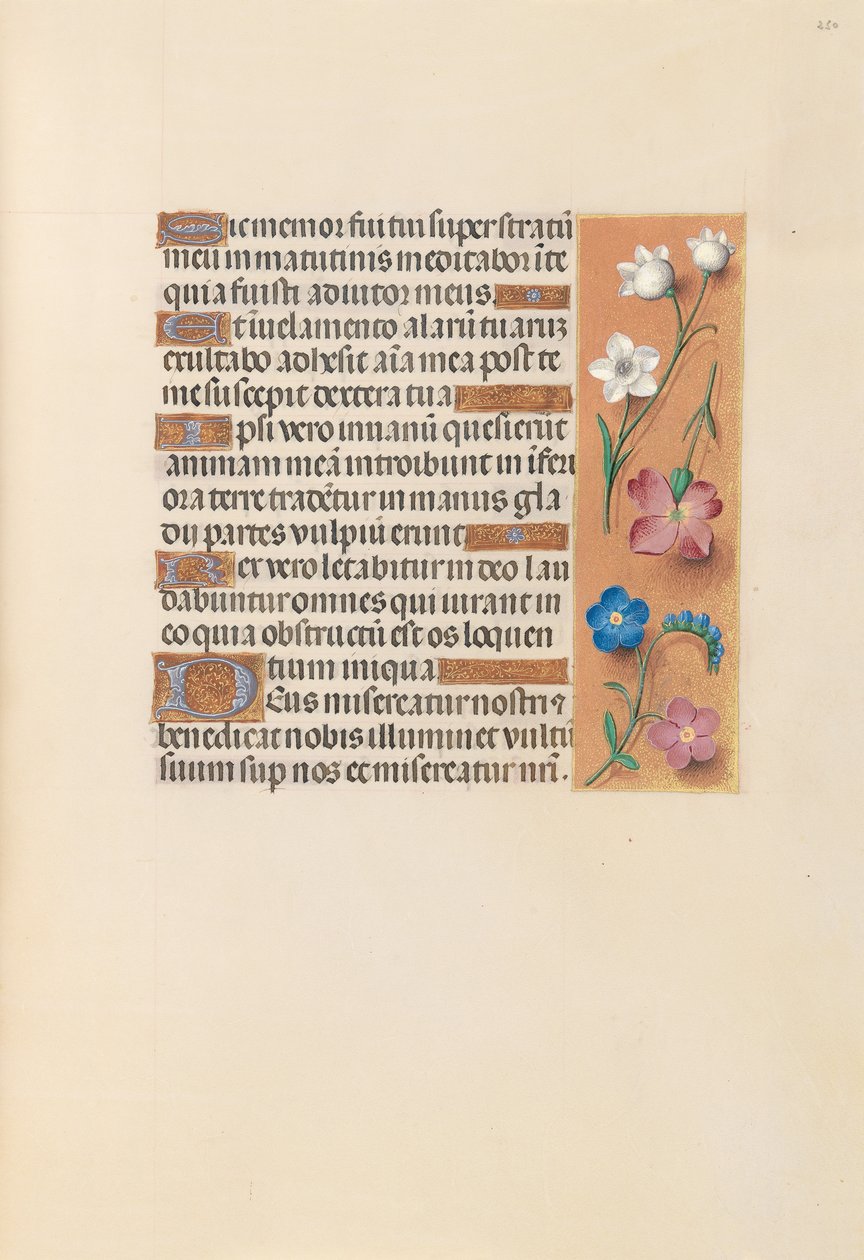 250
Sic memor fui tui super stratū
meū in matutinis meditabor ī te
quia fuisti adiutor meus.
Et ī uelamento alarū tuaruꝫ
exultabo adhesit aīa mea post te
me suscepit dextera tua
Ipsi vero in uanū quesierūt
animam meā introibunt in īferi
ora terre tradētur in manus gla
dij partes vulpiū erunt
Rex vero letabitur in deo lau
dabuntur omnes qui iurant in
eo quia obstructū est os loquen
tium iniqua.
DEus misereatur nostri ⁊
benedicat nobis illuminet vultū
suum sup nos et misereatur nrī.